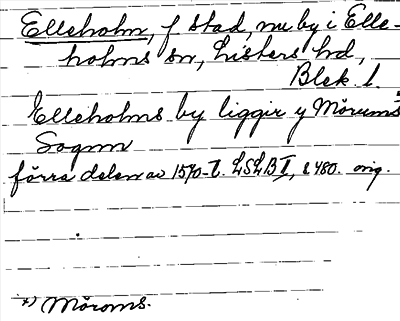 Elleholm, f stad, nu by i Elle-
holms sn, Listers hd,
Blek. l.
Elleholms by ligger y Mörums x)
Sognn
förra delen av 1570-t. LSLB II, s 480. orig.
x) Möroms.